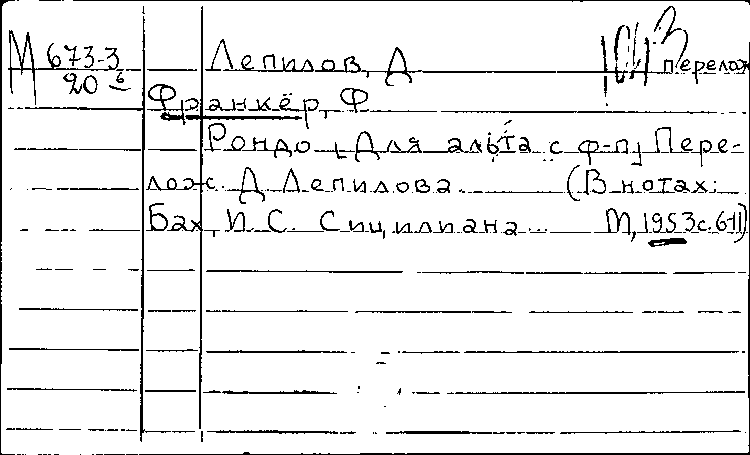 М 673-3 Лепилов, Д перелож
20 6 Франкёр, Ф
Рондо [Для альта с ф-п] Пере-
лож. Д Лепилова... (В нотах:
Бах, И. С. Сицилиана... М, 1953 с. 6-11)